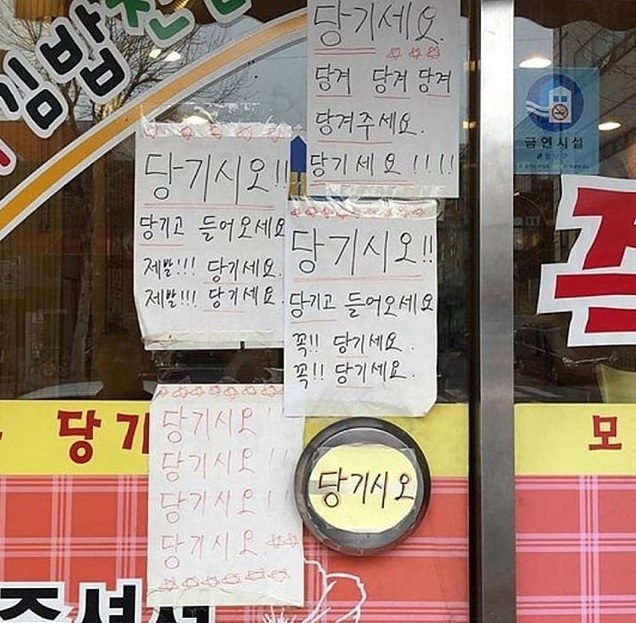 김밥천
당기세요
당겨 당겨 당겨
당겨주세요.
당기세요!!!!
금연시설
당기시오!!
당기고 들어오세요
제발!!! 당기세요.
제발!!! 당기세요.
당기시오!!
당기고 들어오세요
꼭!! 당기세요.
꼭!! 당기세요.
당기시오!
당기시오!!
당기시오!!
당기시오
당기시오
당기
모